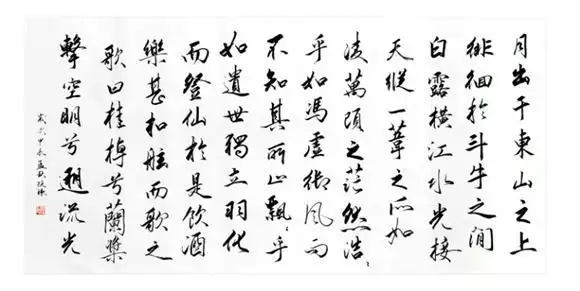 月出于東山之上
徘徊於斗牛之間
白露橫江水光接
天縱一葦之所如
凌萬頃之茫然浩〻
乎如馮虛御風而
不知其所止飄〻乎
如遺世獨立羽化
而登仙於是飲酒
樂甚扣舷而歌之
歌曰桂棹兮蘭槳
擊空明兮遡流光
歲次甲